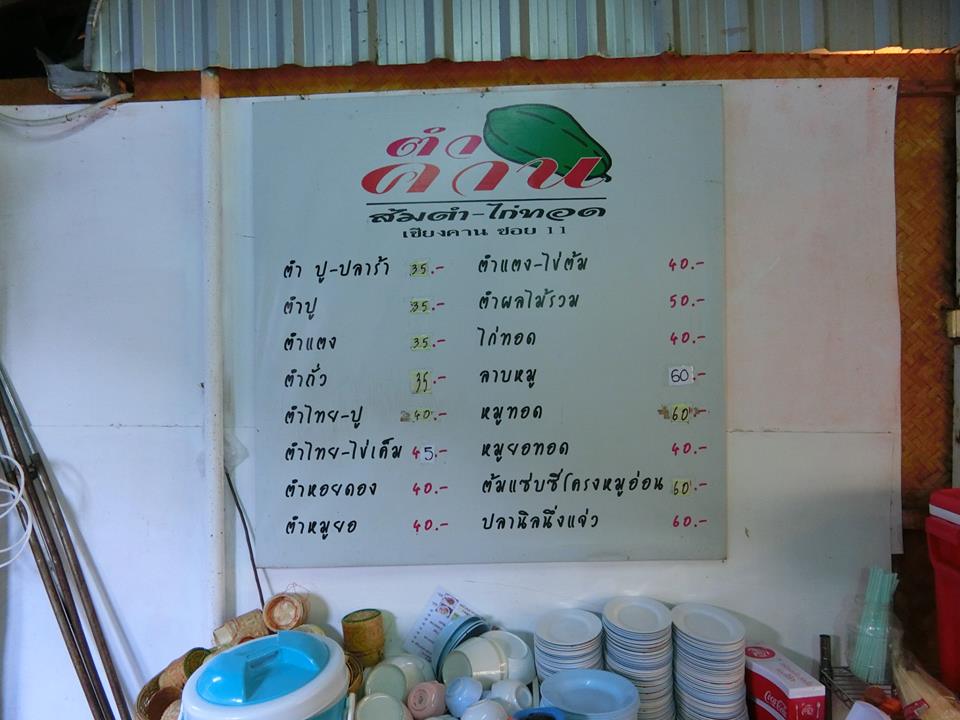 ตำ
คาน
ส้มตำ-ไก่ทอด
เชียงคาน ซอย 11
ตำ ปู-ปลาร้า 35.-
ตำปู 35.-
ตำแตง 35.-
ตำถั่ว 35.-
ตำไทย-ปู 40.-
ตำไทย-ไข่เค็ม 45.-
ตำหอยดอง 40.-
ตำหมูยอ 40.-
ตำแตง-ไข่ต้ม 40.-
ตำผลไม้รวม 50.-
ไก่ทอด 40.-
ลาบหมู 60.-
หมูทอด 60.-
หมูยอทอด 40.-
ต้มแซ่บซี่โครงหมูอ่อน 60.-
ปลานิลนึ่งแจ่ว 60.-
Coca-Cola